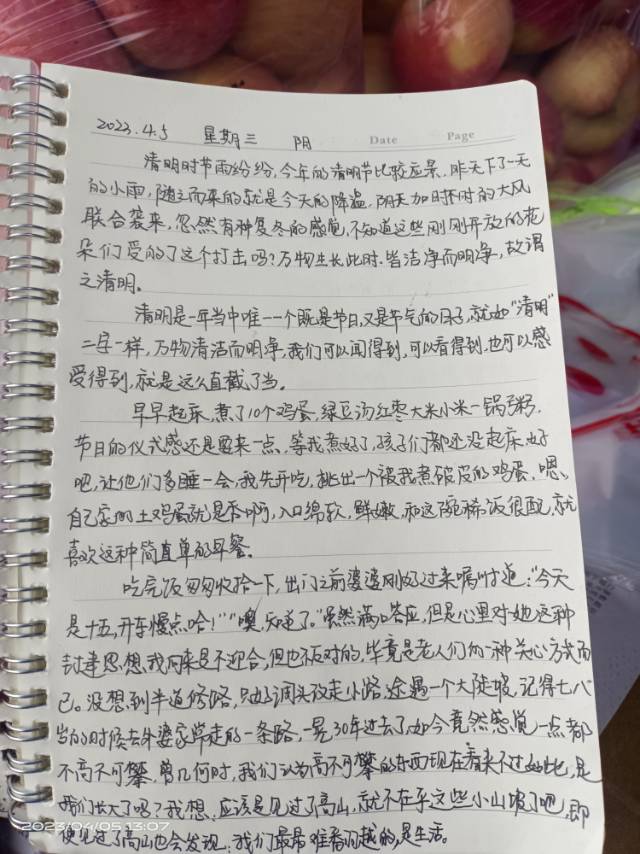 2023.4.5 星期三 阴 Date Page
清明时节雨纷纷,今年的清明节比较应景,昨天下了一天
的小雨,随之而来的就是今天的降温,阴天加时不时的大风
联合袭来,忽然有种复冬的感觉,不知道这些刚刚开放的花
朵们受的了这个打击吗?万物生长此时,皆洁净而明净,故谓
之清明。
清明是一年当中唯一一个既是节日,又是节气的日子,就如“清明”
二字一样,万物清洁而明净,我们可以闻得到,可以看得到,也可以感
受得到,就是这么直截了当。
早早起床,煮了10个鸡蛋,绿豆汤红枣大米小米一锅粥,
节日的仪式感还是要来一点,等我煮好了,孩子们都还没起床,好
吧,让他们多睡一会,我先开吃,挑出一个被我煮破皮的鸡蛋,嗯,
自己家的土鸡蛋就是香啊,入口绵软,鲜嫩,和这碗稀饭很配,就
喜欢这种简直单的早餐。
吃完饭匆匆收拾一下,出门之前婆婆刚好过来嘱咐道:“今天
是十五,开车慢点哈!”“噢,知道了。”虽然满口答应,但是心里对她这种
封建思想,我向来是不迎合,但也不反对的,毕竟是老人们的一种关心方式而
已。没想到半道修路,只好调头改走小路,途遇一个大陡坡,记得七八
岁的时候去外婆家常走的一条路,一晃30年过去了,如今竟然感觉一点都
不高不可攀,曾几何时,我们认为高不可攀的东西现在看来不过如此,是
我们长大了吗?我想,应该是见过了高山,就不在乎这些小山坡了吧,即
便见过了高山也会发现,我们最难翻越的,是生活。
2023/04/05 13:07